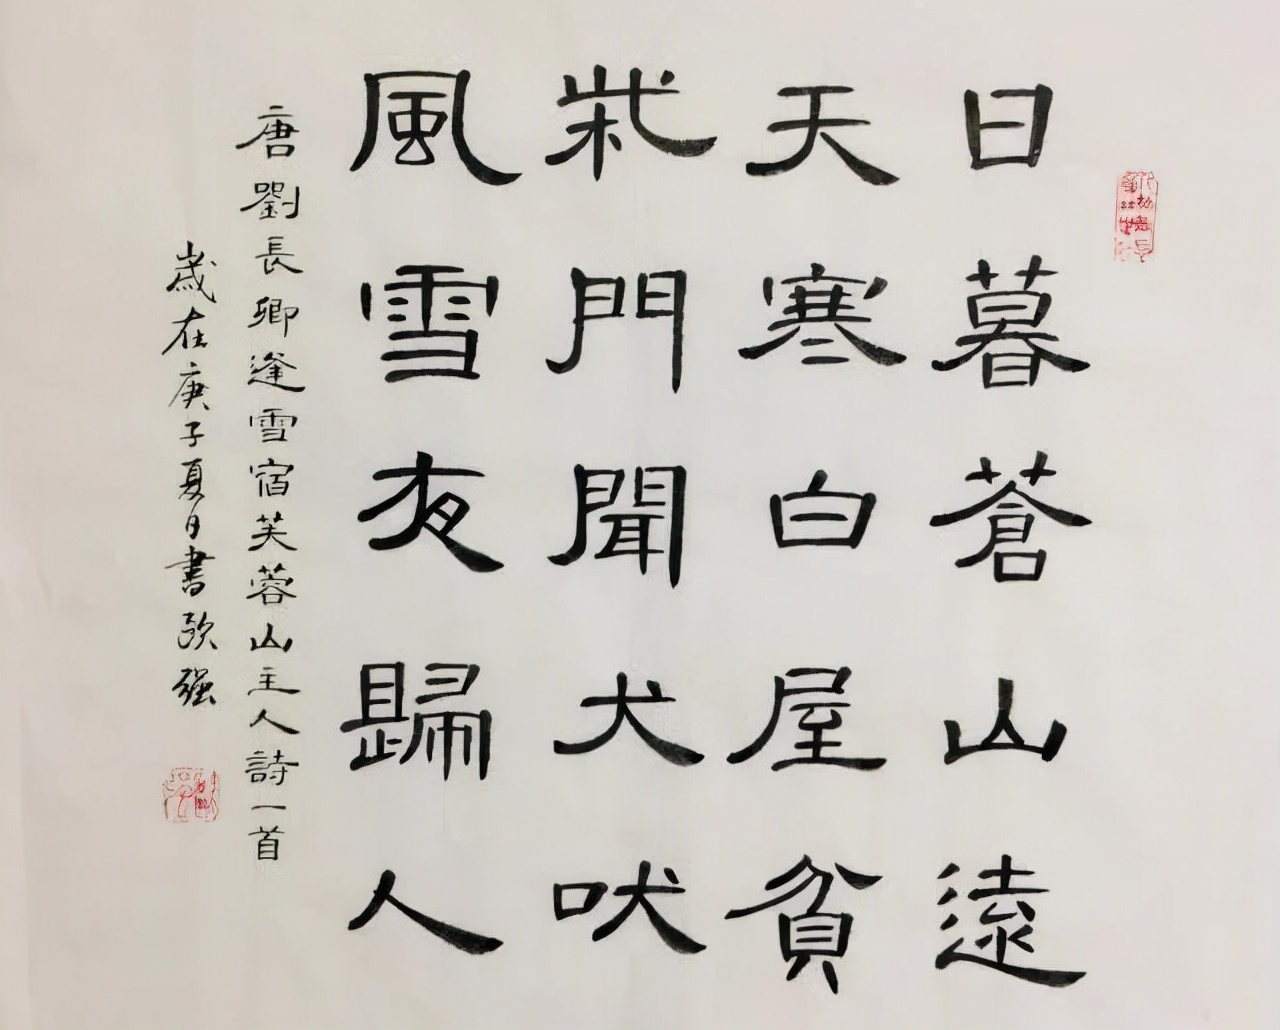 日暮蒼山遠
天寒白屋貧
柴門聞犬吠
風雪夜歸人
唐劉長卿逢雪宿芙蓉山主人詩一首
歲在庚子夏日書歐強